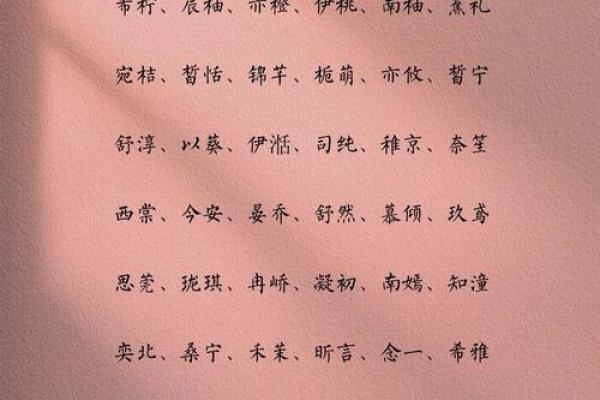 希柠、辰柚、亦橙、伊桃、南柚、蕉礼
宛桔、皙恬、锦芊、栀萌、亦攸、皙宁
舒淳、以葵、伊湉、司纯、稚京、奈笙
西棠、今安、晏乔、舒然、慕倾、玖鸢
思莞、珑琪、冉峤、凝初、南嫣、知潼
奕北、桑宁、禾茉、昕言、念一、希雅